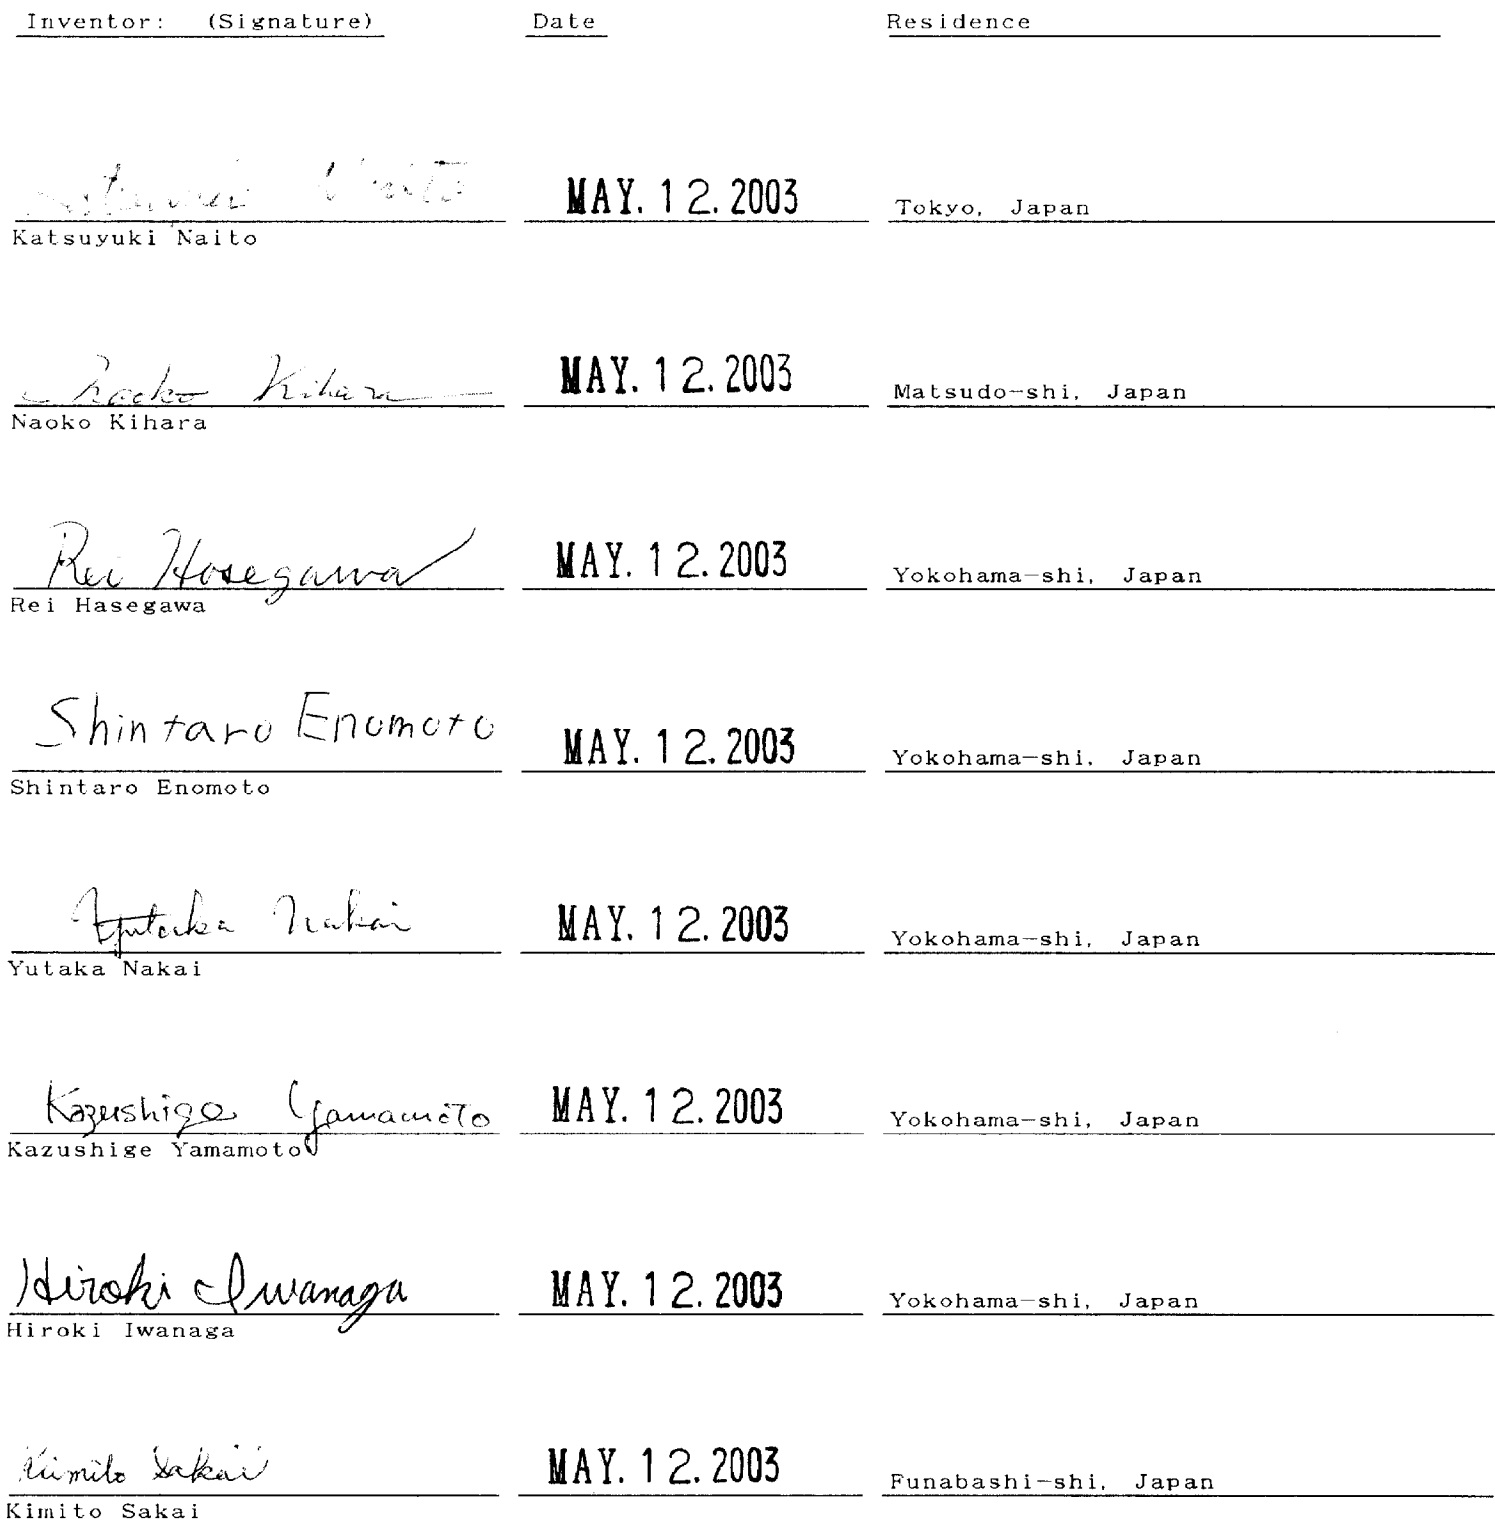 Inventor: (Signature) Date Residence
Naito MAY. 12. 2003 Tokyo, Japan
Katsuyuki Naito
Naoko Kihara MAY. 12. 2003 Matsudo-shi, Japan
Naoko Kihara
Rei Hasegawa MAY. 12. 2003 Yokohama-shi, Japan
Rei Hasegawa
Shintaro Enomoto MAY. 12. 2003 Yokohama-shi, Japan
Shintaro Enomoto
Yutaka Nakai MAY. 12. 2003 Yokohama-shi, Japan
Yutaka Nakai
Kazushige Yamamoto MAY. 12. 2003 Yokohama-shi, Japan
Kazushige Yamamoto
Hiroki Iwanaga MAY. 12. 2003 Yokohama-shi, Japan
Hiroki Iwanaga
Kimito Sakai MAY. 12. 2003 Funabashi-shi, Japan
Kimito Sakai